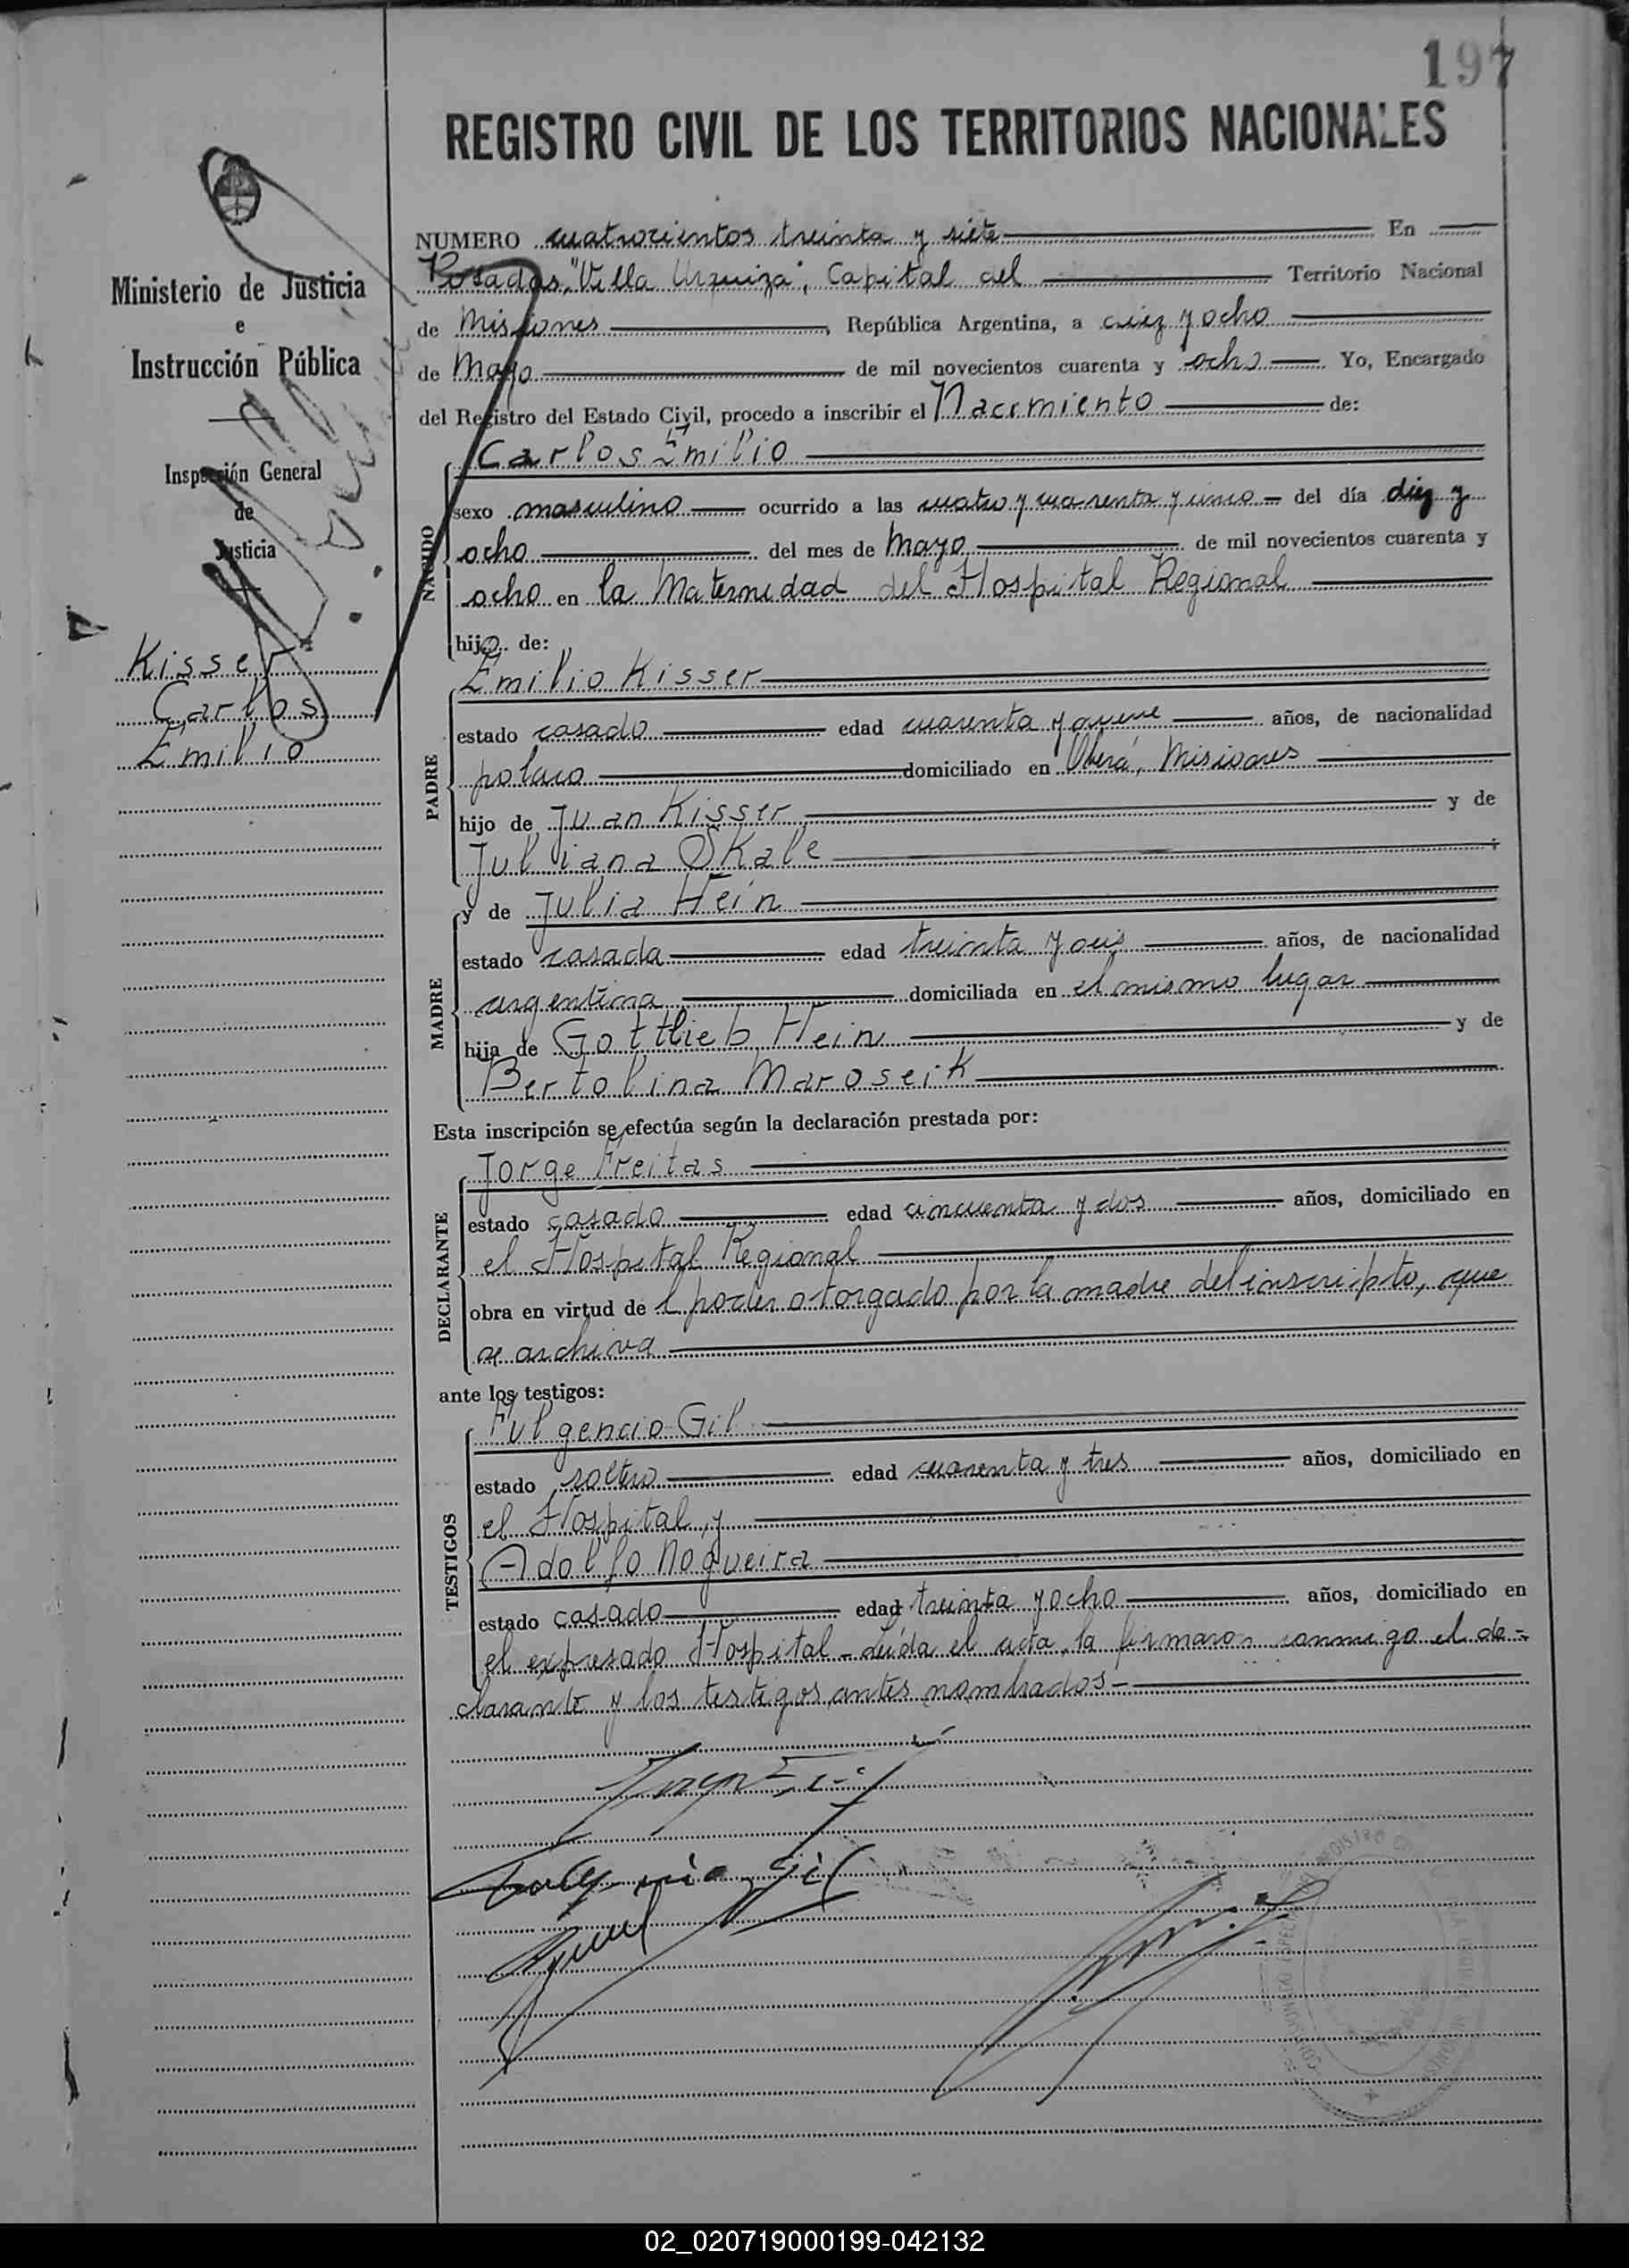 197
REGISTRO CIVIL DE LOS TERRITORIOS NACIONALES
Ministerio de Justicia
e
Instrucción Pública
Inspección General
de
Justicia
Kisser
Carlos
Emilio
NUMERO cuatrocientos treinta y siete En
Posadas, "Villa Urquiza", Capital del Territorio Nacional
de Misiones, República Argentina, a diez y ocho
de Mayo de mil novecientos cuarenta y ocho Yo, Encargado
del Registro del Estado Civil, procedo a inscribir el Nacimiento de:
NACIDO
Carlos Emilio
sexo masculino ocurrido a las cuatro y cuarenta y cinco del día diez y
ocho del mes de Mayo de mil novecientos cuarenta y
ocho en la Maternidad del Hospital Regional
hijo de:
PADRE
Emilio Kisser
estado casado edad cuarenta y nueve años, de nacionalidad
polaco domiciliado en Oberá, Misiones
hijo de Juan Kisser y de
Juliana Skale ;
MADRE
y de Julia Hein
estado casada edad treinta y años, de nacionalidad
argentina domiciliada en el mismo lugar
hija de Gottlieb Hein y de
Bertolina Maroseik
Esta inscripción se efectúa según la declaración prestada por:
DECLARANTE
Jorge Freitas
estado casado edad cincuenta y dos años, domiciliado en
el Hospital Regional
obra en virtud de l poder otorgado por la madre del inscripto, que
se archiva
ante los testigos:
TESTIGOS
Fulgencio Gil
estado soltero edad cuarenta y tres años, domiciliado en
el Hospital, y
Adolfo Nogueira
estado casado edad treinta y ocho años, domiciliado en
el expresado Hospital - Leída el acta, la firmaron conmigo el de-
clarante y los testigos antes nombrados -
Fulgencio Gil
02_020719000199-042132